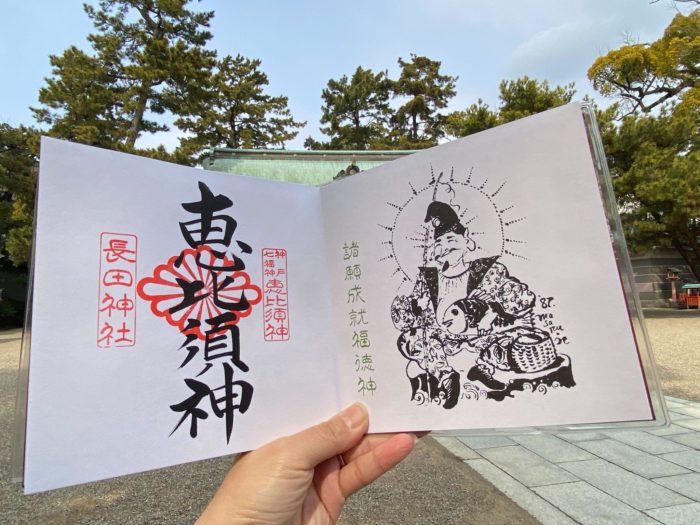 長田神社
恵比須神
神戸
七福神
恵比須神
諸願成就福徳神